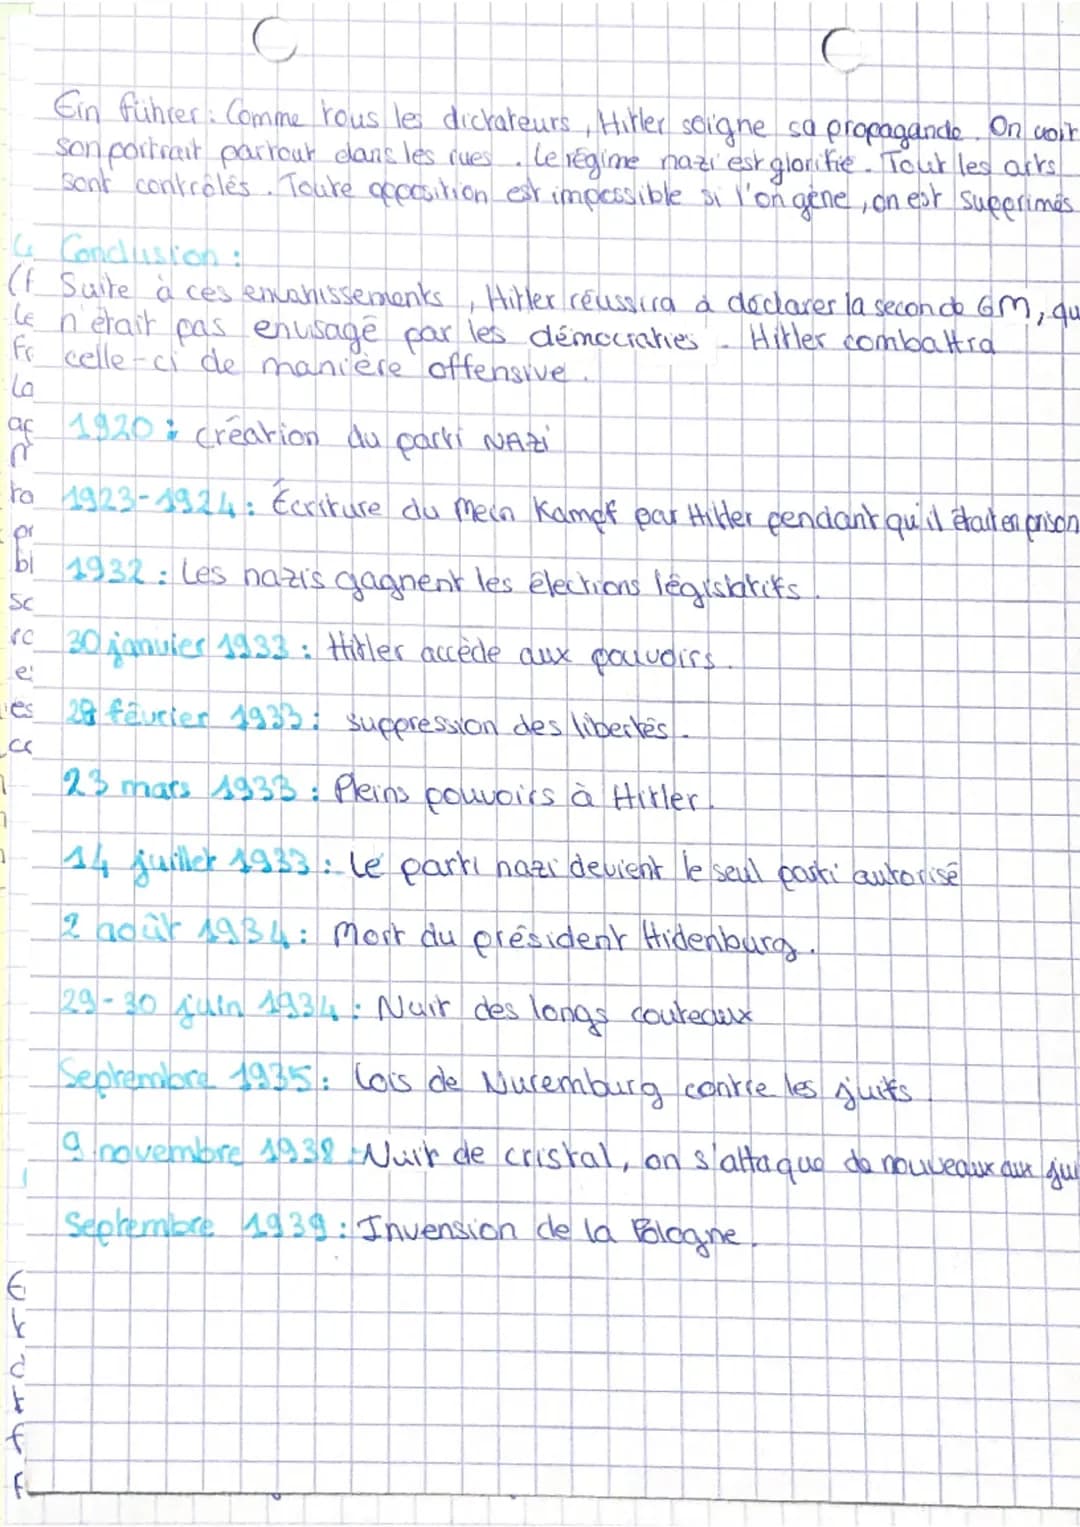 Ein führer : Comme tous les dictateurs, Hitler soigne sa propagande. On voit
son portrait partout dans les rues. Le régime nazi est glorifié. Tout les arts
sont contrôlés. Toute opposition est impossible si l'on gène, on est supprimés.
Conclusion :
Suite à ces envahissements, Hitler réussira à déclarer la seconde GM, qu
n'était pas envisagé par les démocraties. Hitler combattra
celle-ci de manière offensive.
1920 : création du parti NAZi
1923-1924 : Écriture du Mein Kampf par Hitler pendant qu'il était en prison
1932 : Les nazis gagnent les élections législatifs.
30 janvier 1933 : Hitler accède aux pouvoirs.
28 février 1933 : suppression des libertés.
23 mars 1933 : Pleins pouvoirs à Hitler.
14 juillet 1933 : Le parti nazi devient le seul parti autorisé
2 août 1934 : Mort du président Hidenburg.
29-30 juin 1934 : Nuit des longs couteaux
Septembre 1935 : Lois de Nuremburg contre les juifs.
9 novembre 1938 : Nuit de cristal, on s'attaque de nouveaux aux jui
Septembre 1939 : Invension de la Pologne.